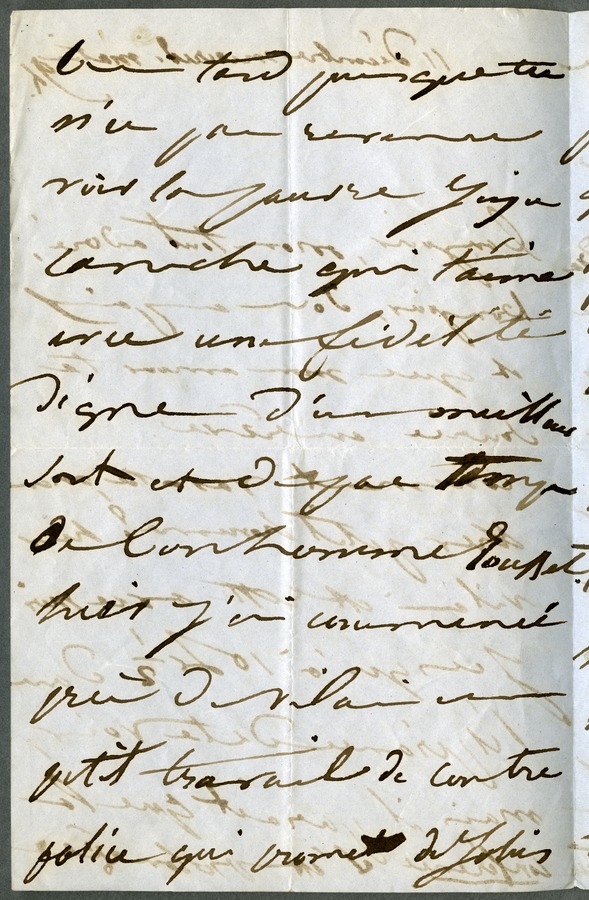 tard puisque tu
n'es pas revenu
voir la pauvre Juju
caniche qui t'aime
avec une fidélité
digne d'un meilleur
sort et de que temps
de bonhomme
hier j'ai commencé
près de vilain un
petit travail de contre
police qui promet de jolis